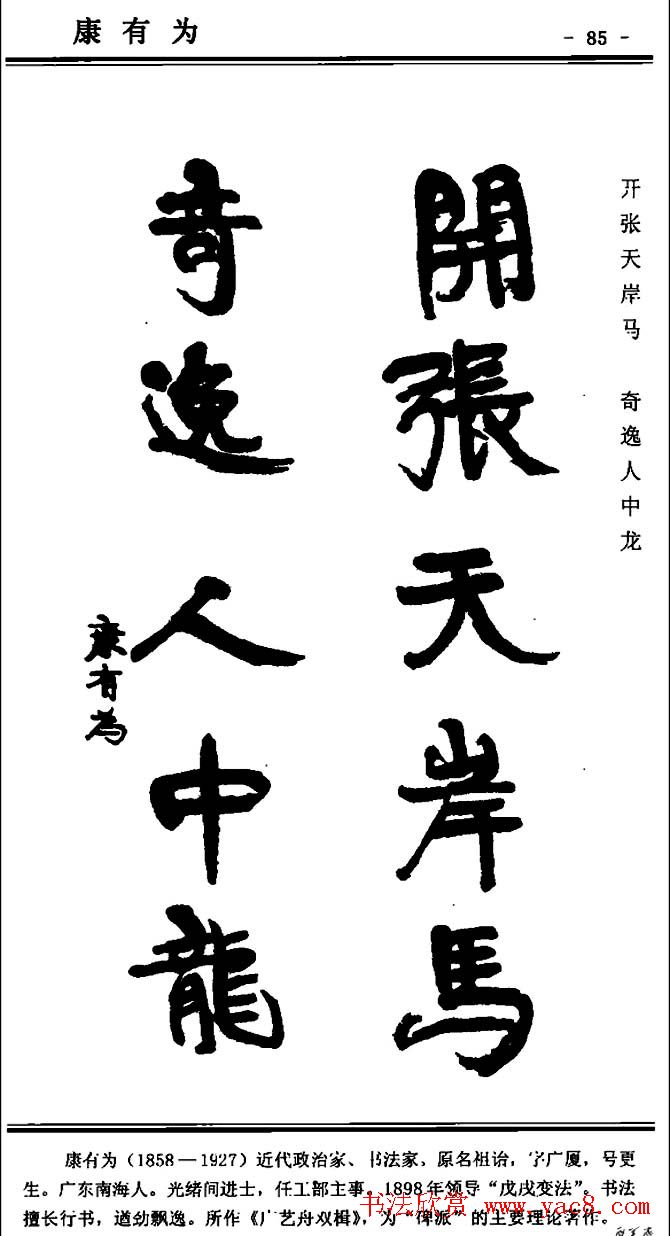 康有为
- 85 -
開張天岸馬
奇逸人中龍
康有為
开张天岸马 奇逸人中龙
康有为（1858—1927）近代政治家、书法家，原名祖诒，字广厦，号更
生。广东南海人。光绪间进士，任工部主事，1898年领导“戊戌变法”。书法
擅长行书，遒劲飘逸。所作《广艺舟双楫》，为“碑派”的主要理论著作。
书法欣赏 www.yac8.com